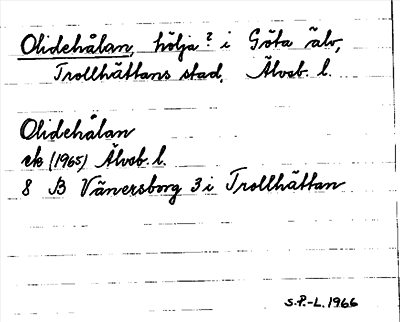 Olidehålan, hölja? i Göta älv,
Trollhättans stad, Älvsb. l.
Olidehålan
ek (1965) Älvsb. l.
8 B Vänersborg 3 i Trollhättan
S.P.-L. 1966